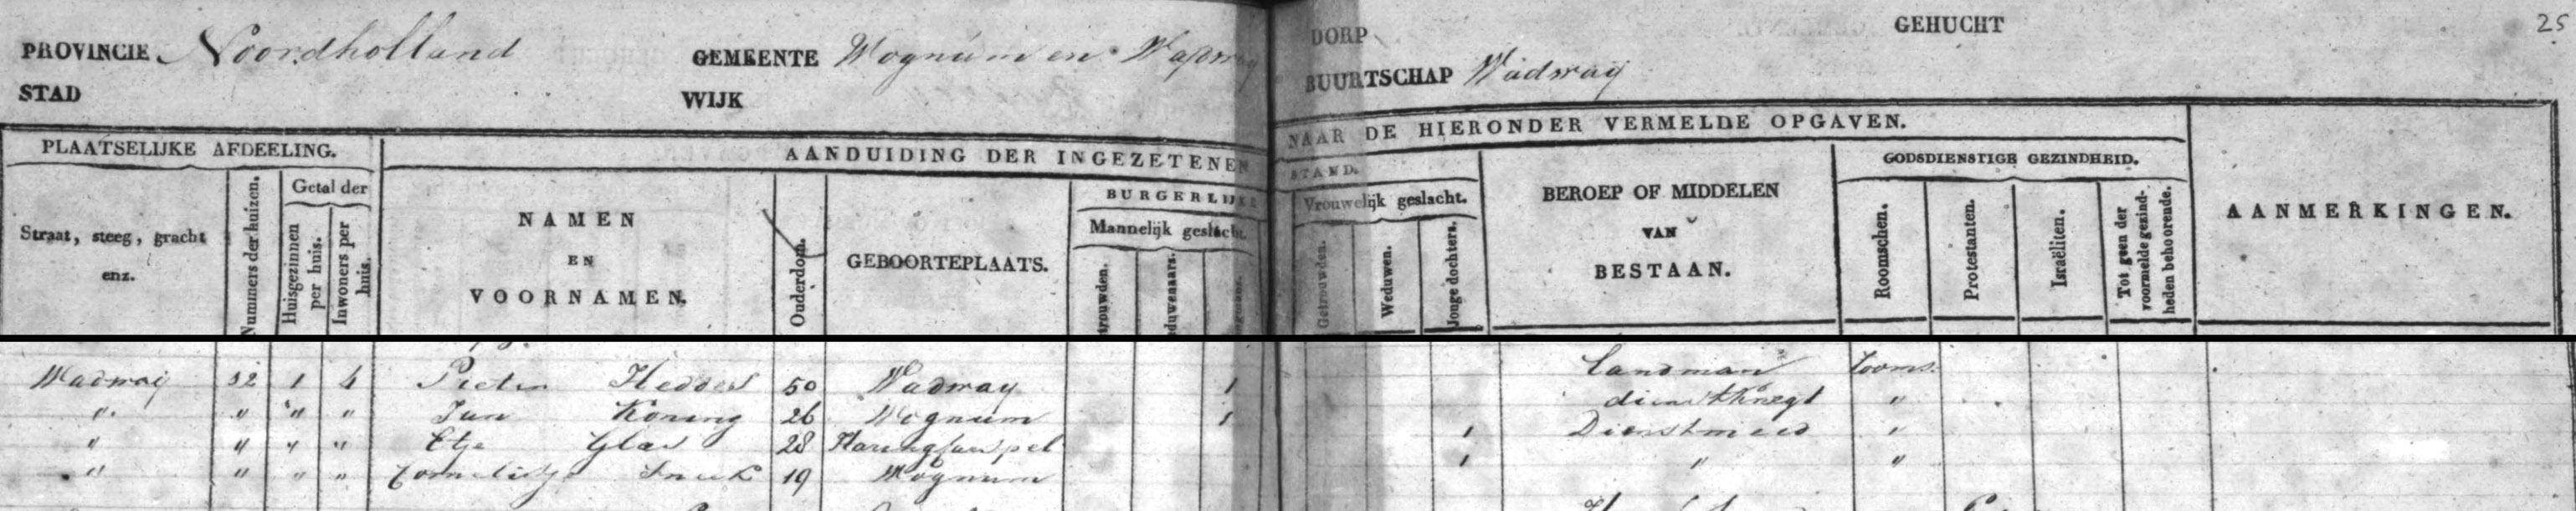 PROVINCIE Noordholland GEMEENTE Wognum en Wadway DORP GEHUCHT 25
STAD WIJK BUURTSCHAP Wadway
PLAATSELIJKE AFDEELING. AANDUIDING DER INGEZETENEN NAAR DE HIERONDER VERMELDE OPGAVEN.
Straat, steeg, gracht enz.
Nummers der huizen.
Getal der
Huisgezinnen per huis.
Inwoners per huis.
NAMEN
EN
VOORNAMEN.
Ouderdom.
GEBOORTEPLAATS.
BURGERLIJKE STAND.
Mannelijk geslacht. Vrouwelijk geslacht.
trouwden.
duwenaars.
Getrouwden.
Weduwen.
Jonge dochters.
BEROEP OF MIDDELEN
VAN
BESTAAN.
GODSDIENSTIGE GEZINDHEID.
Roomschen.
Protestanten.
Israëliten.
Tot geen der voormelde gezindheden behoorende.
AANMERKINGEN.
Wadway 32 1 4 Pieter 50 Wadway 1 Landman rooms.
" " " " Jan Koning 26 Wognum 1 dienstknegt "
" " " " Etje Glas 28 Haringkarspel 1 Dienstmeid "
" " " " Cornelisje 19 Wognum 1 " "